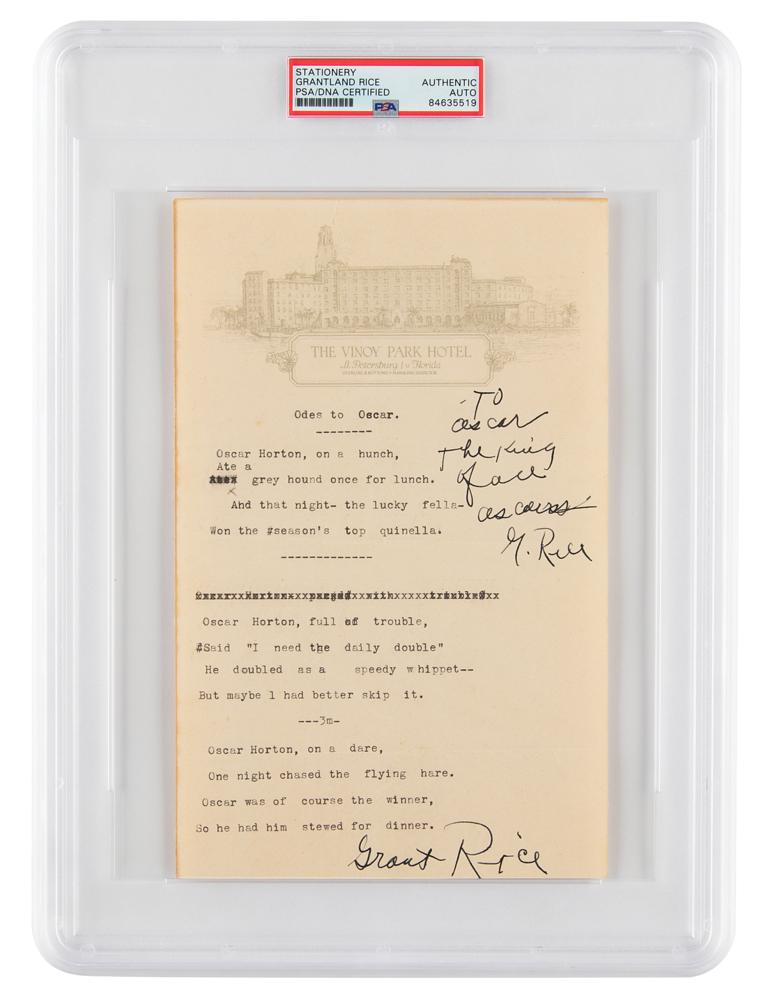 STATIONERY
GRANTLAND RICE
PSA/DNA CERTIFIED
AUTHENTIC
AUTO
84635519
PSA
THE VINOY PARK HOTEL
St. Petersburg Florida
Odes to Oscar.
--------
To
Oscar
The King
of all
G. Rice
Oscar Horton, on a hunch,
Ate a
grey hound once for lunch.
And that night- the lucky fella-
Won the #season's top quinella.
-------------
Oscar Horton, full of trouble,
#Said "I need the daily double"
He doubled as a speedy whippet--
But maybe I had better skip it.
---3m-
Oscar Horton, on a dare,
One night chased the flying hare.
Oscar was of course the winner,
So he had him stewed for dinner.
Grant Rice